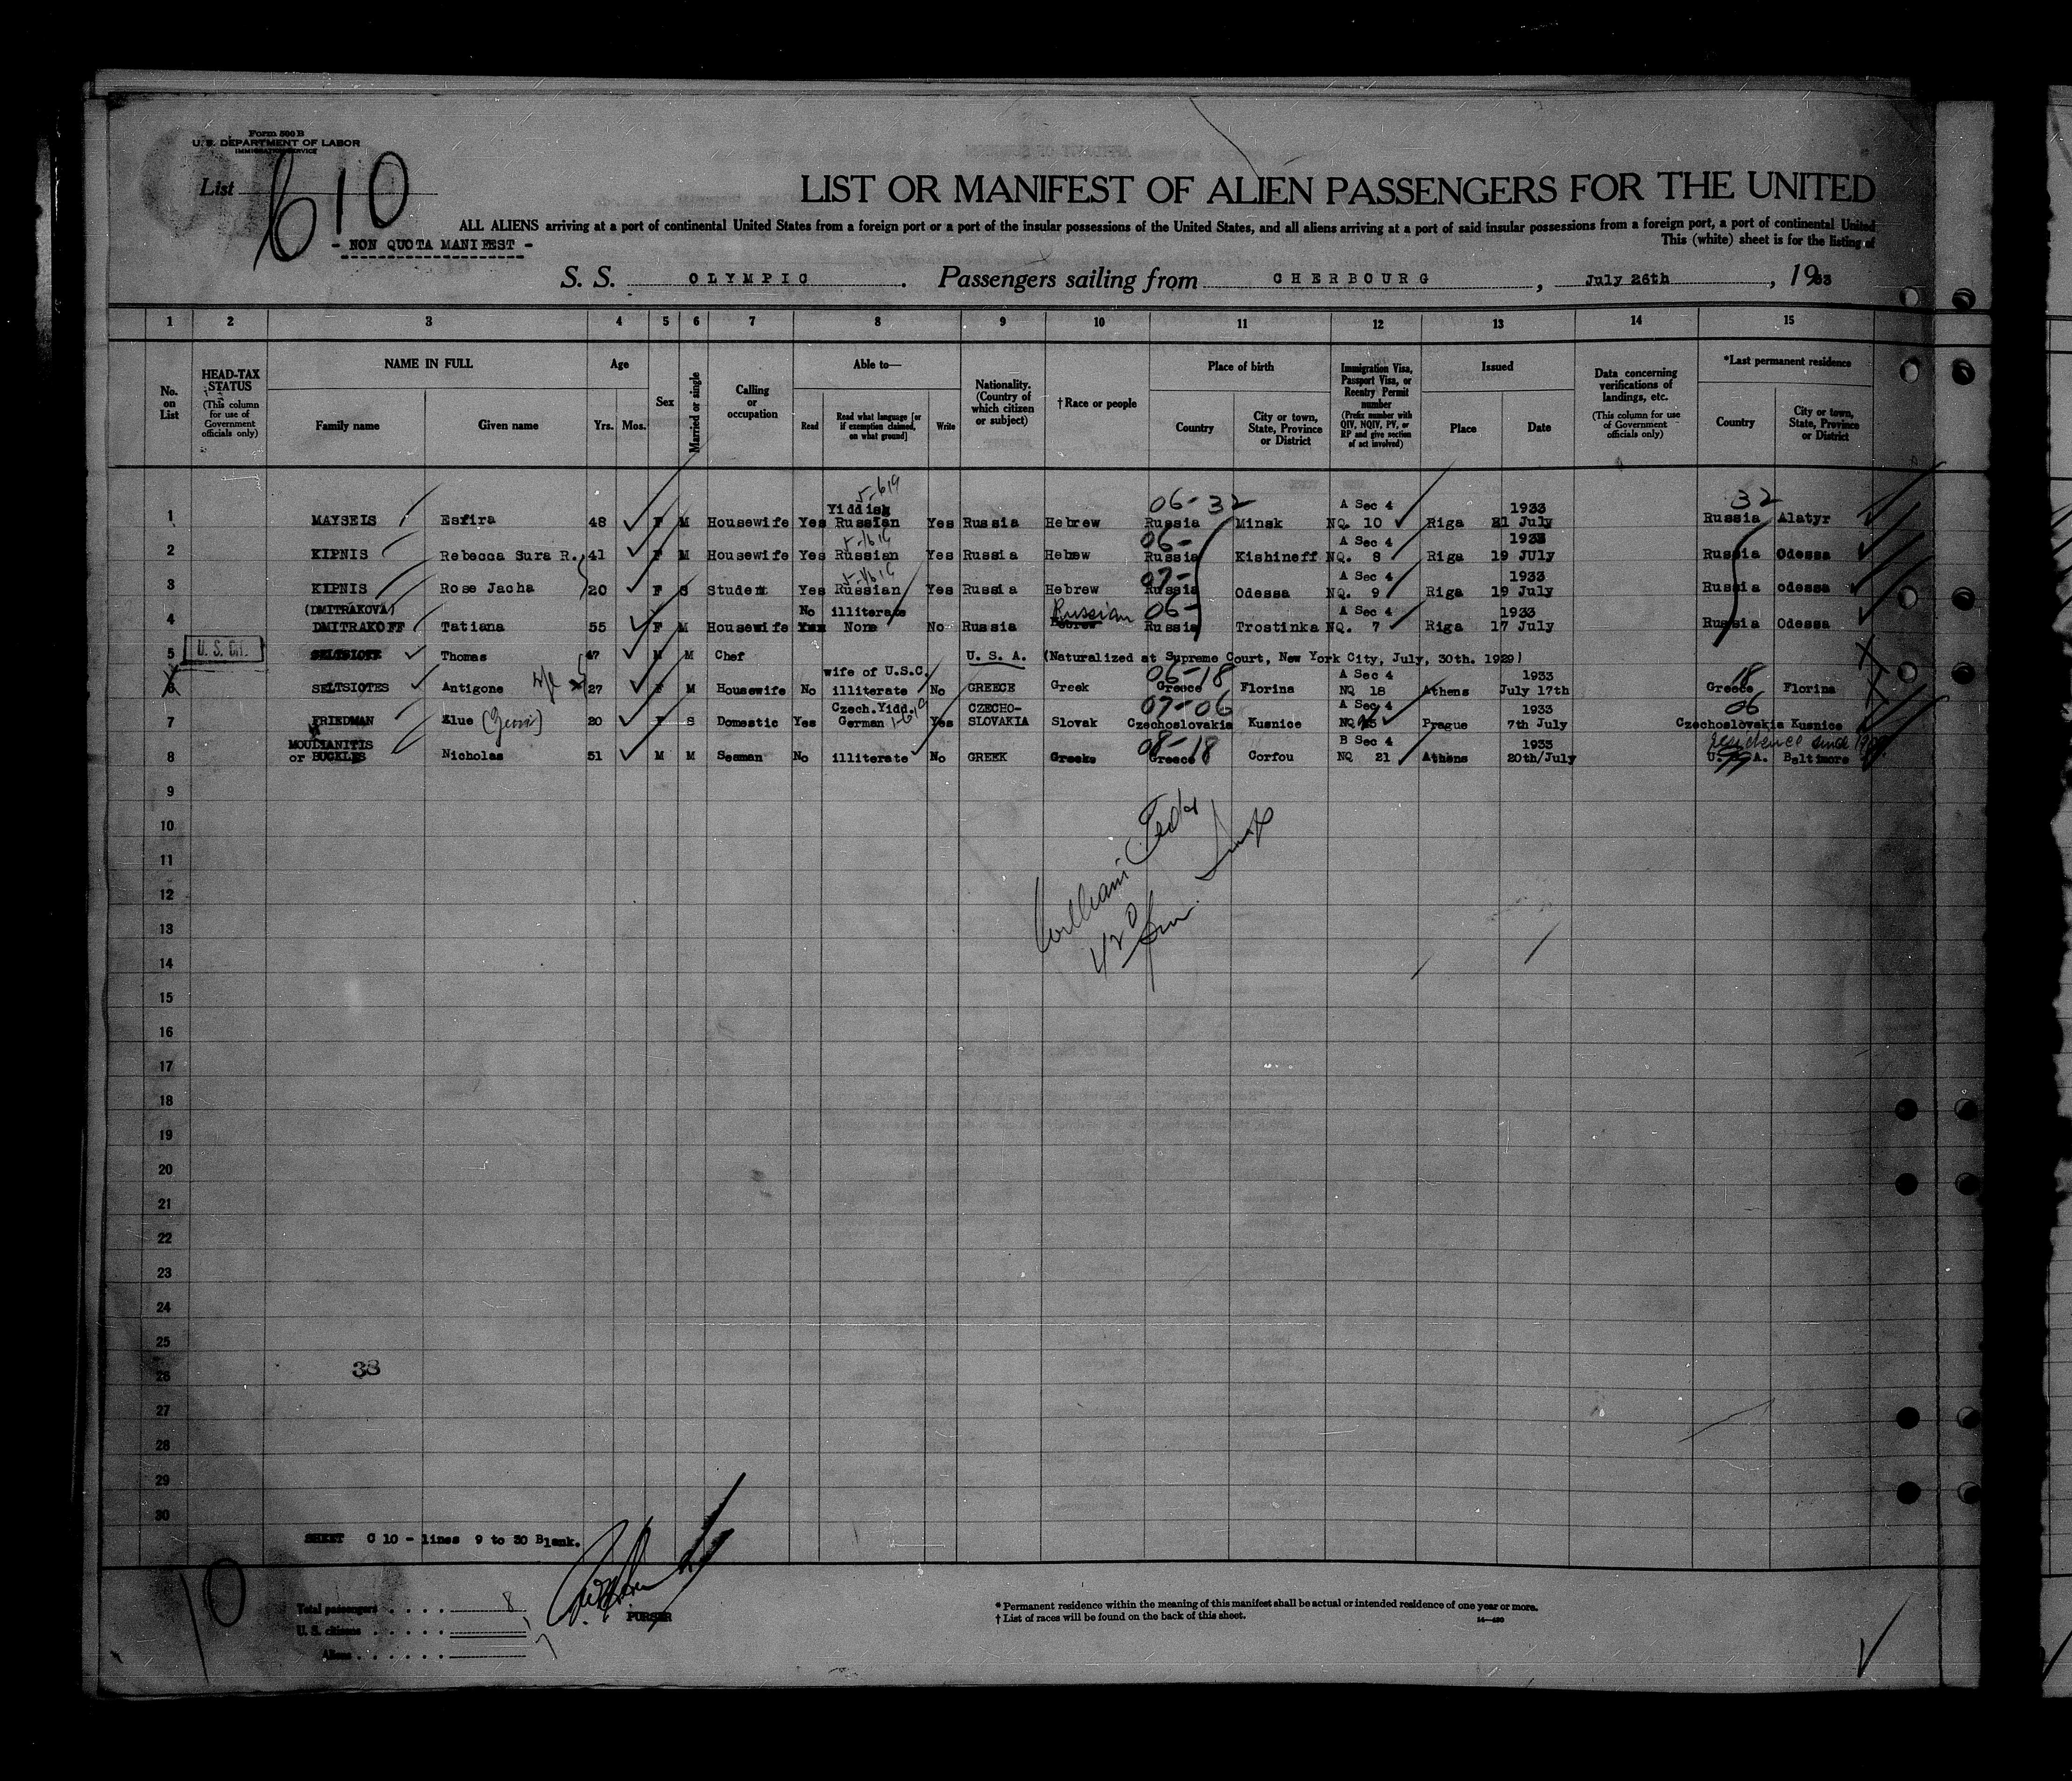 Form 500 B
U. S. DEPARTMENT OF LABOR
IMMIGRATION SERVICE
List 610
- NON QUOTA MANIFEST -
LIST OR MANIFEST OF ALIEN PASSENGERS FOR THE UNITED
ALL ALIENS arriving at a port of continental United States from a foreign port or a port of the insular possessions of the United States, and all aliens arriving at a port of said insular possessions from a foreign port, a port of continental United
This (white) sheet is for the listing of
S. S. OLYMPIC. Passengers sailing from CHERBOURG, July 26th, 1933
1 2 3 4 5 6 7 8 9 10 11 12 13 14 15
No. on List
HEAD-TAX STATUS (This column for use of Government officials only)
NAME IN FULL
Family name Given name
Age
Yrs. Mos.
Sex
Married or single
Calling or occupation
Able to—
Read Read what language [or if exemption claimed, on what ground] Write
Nationality. (Country of which citizen or subject)
†Race or people
Place of birth
Country City or town, State, Province or District
Immigration Visa, Passport Visa, or Reentry Permit number (Prefix number with QIV, NQIV, PV, or RP and give section of act involved)
Issued
Place Date
Data concerning verifications of landings, etc. (This column for use of Government officials only)
*Last permanent residence
Country City or town, State, Province or District
Yiddish 06-32 A Sec 4 1933 32
1 MAYSEIS Esfira 48 F M Housewife Yes Russian Yes Russia Hebrew Russia Minsk NQ. 10 Riga 21 July Russia Alatyr
06- A Sec 4 1933
2 KIPNIS Rebecca Sura R. 41 F M Housewife Yes Russian Yes Russia Hebrew Russia Kishineff NQ. 8 Riga 19 JUly Russia Odessa
07- A Sec 4 1933
3 KIPNIS Rose Jacha 20 F S Student Yes Russian Yes Russia Hebrew Russia Odessa NQ. 9 Riga 19 July Russia odessa
(DMITRAKOVA) No illiterate Russian 06- A Sec 4 1933
4 DMITRAKOFF Tatiana 55 F M Housewife None No Russia Hebrew Russia Trostinka NQ. 7 Riga 17 July Russia Odessa
5 U. S. Cit. SELTSIOTE Thomas 47 M M Chef U. S. A. (Naturalized at Supreme Court, New York City, July, 30th. 1929)
wife of U.S.C. 06-18 A Sec 4 1933 18
6 SELTSIOTES Antigone 27 F M Housewife No illiterate No GREECE Greek Greece Florina NQ 18 Athens July 17th Greece Florina
Czech.Yidd. CZECHO- 07-06 A Sec 4 1933 06
7 FRIEDMAN Elue 20 F S Domestic Yes German Yes SLOVAKIA Slovak Czechoslovakia Kusnice NQ Prague 7th July Czechoslovakia Kusnice
MOULIANITIS 08-18 B Sec 4 1933 residence since
8 or BUCKLES Nicholas 51 M M Seaman No illiterate No GREEK Greeke Greece Corfou NQ 21 Athens 20th/July U. S. A. Baltimore
9
10
11
12
13
14
15
16
17
18
19
20
21
22
23
24
25
38
26
27
28
29
30
SHEET C 10 - lines 9 to 30 Blank.
10
Total passengers . . . . 8
U. S. citizens . . . . . . 1
Aliens . . . . . . 7
PURSER
* Permanent residence within the meaning of this manifest shall be actual or intended residence of one year or more.
† List of races will be found on the back of this sheet.
14—430